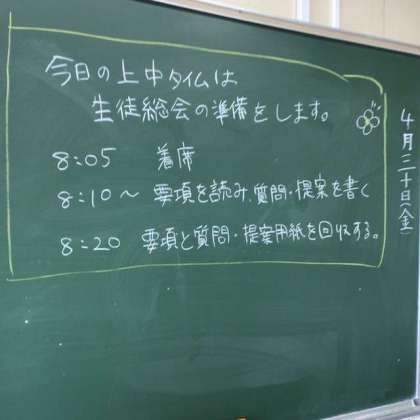 今日の上中タイムは
生徒総会の準備をします。
8:05 着席
8:10~ 要項を読み、質問・提案を書く
8:20 要項と質問・提案用紙を回収する。
4月二十日(金)